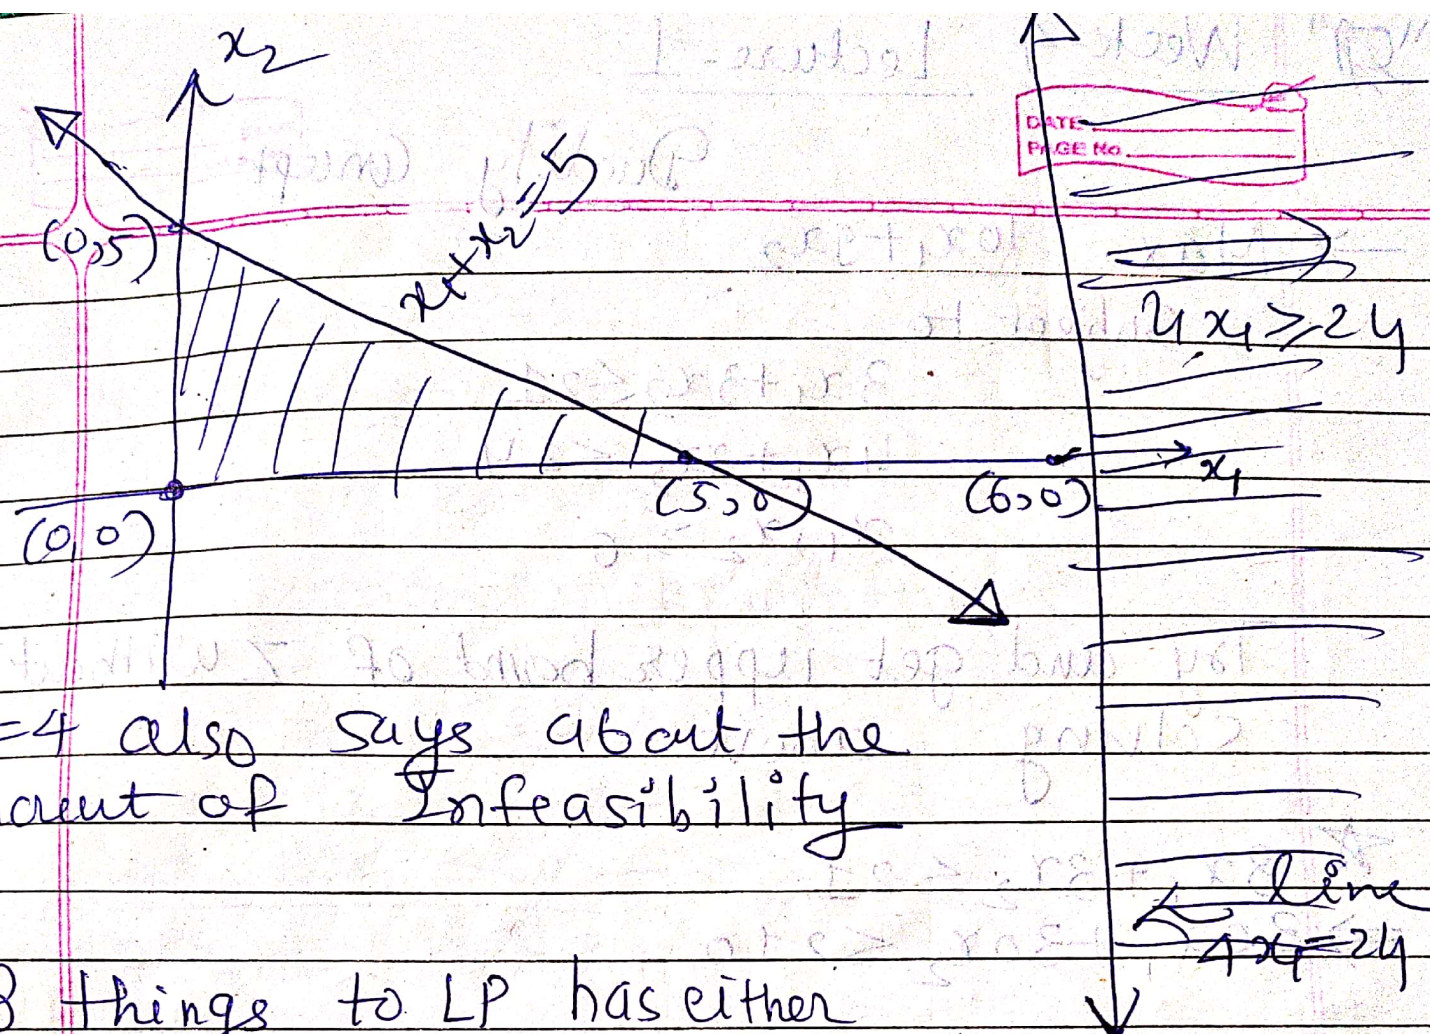 x₂
DATE
PAGE No
(0,5)
x₁+x₂=5
4x₁≥24
x₁
(0,0)
(5,0)
(6,0)
=4 also says about the
of Infeasibility
line
4x₁=24
3 things to LP has either